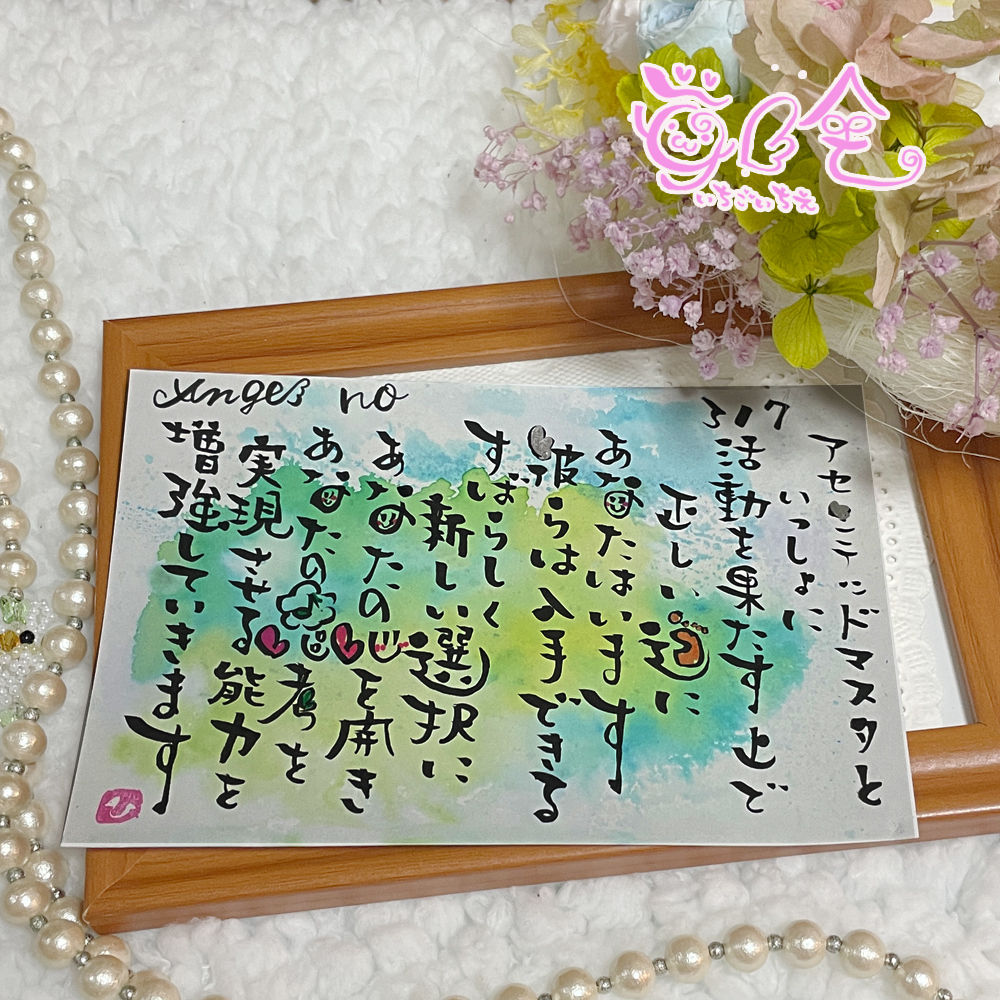 Angel no
317
アセンテッドマスタと
いっしょに
活動を果たす上で
正しい道に
あなたはいます
彼らは入手できる
すばらしく
新しい選択に
あなたの
を開き
あなたの
考を
実現させる能力を
増強していきます
苺一舎
いちごいちえ